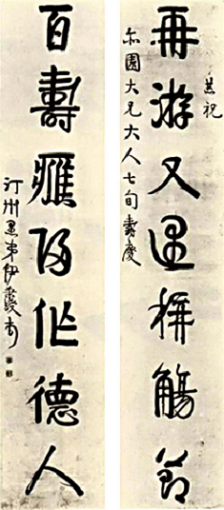 恭祝
再游又遇稱觴節
尒園大兄大人七旬壽慶
百壽應作德人
汀州愚弟伊秉綬書